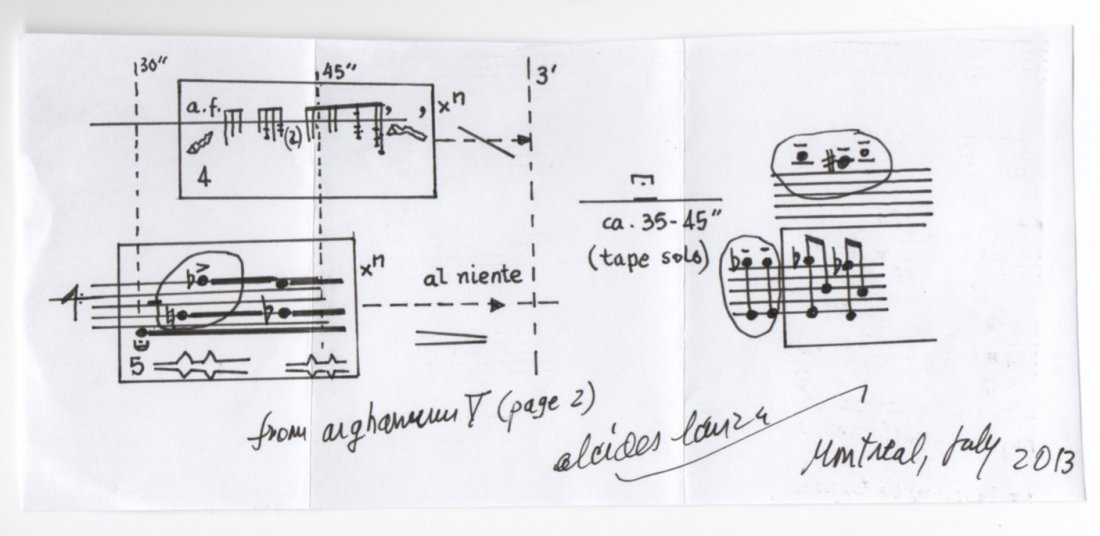 30"
45"
3'
a.f.
xⁿ
(2)
4
ca. 35-45"
(tape solo)
xⁿ
al niente
5
from arghanum V (page 2)
alcides lanza
Montreal, July 2013